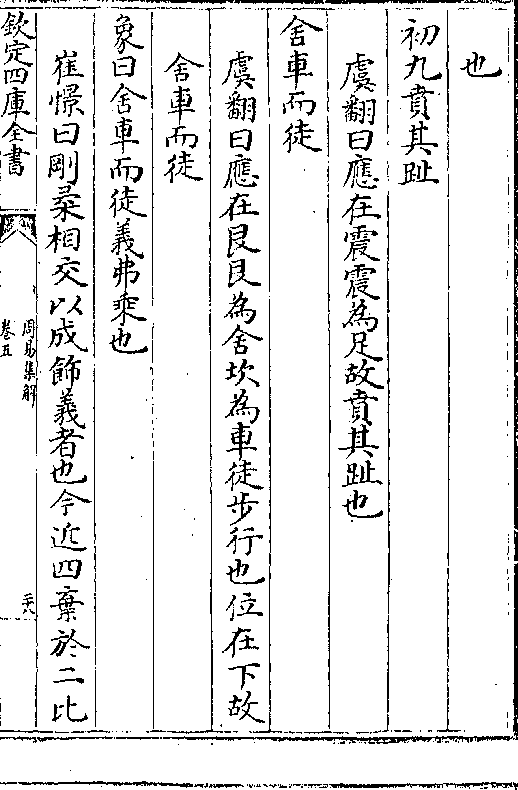 也
初九賁其趾
虞翻曰應在震震為足故賁其趾也
舍車而徒
虞翻曰應在艮艮為舍坎為車徒步行也位在下故
舍車而徒
象曰舍車而徒義弗乘也
崔憬曰剛柔相交以成飾義者也今近四棄於二比
欽定四庫全書
周易集解
卷五